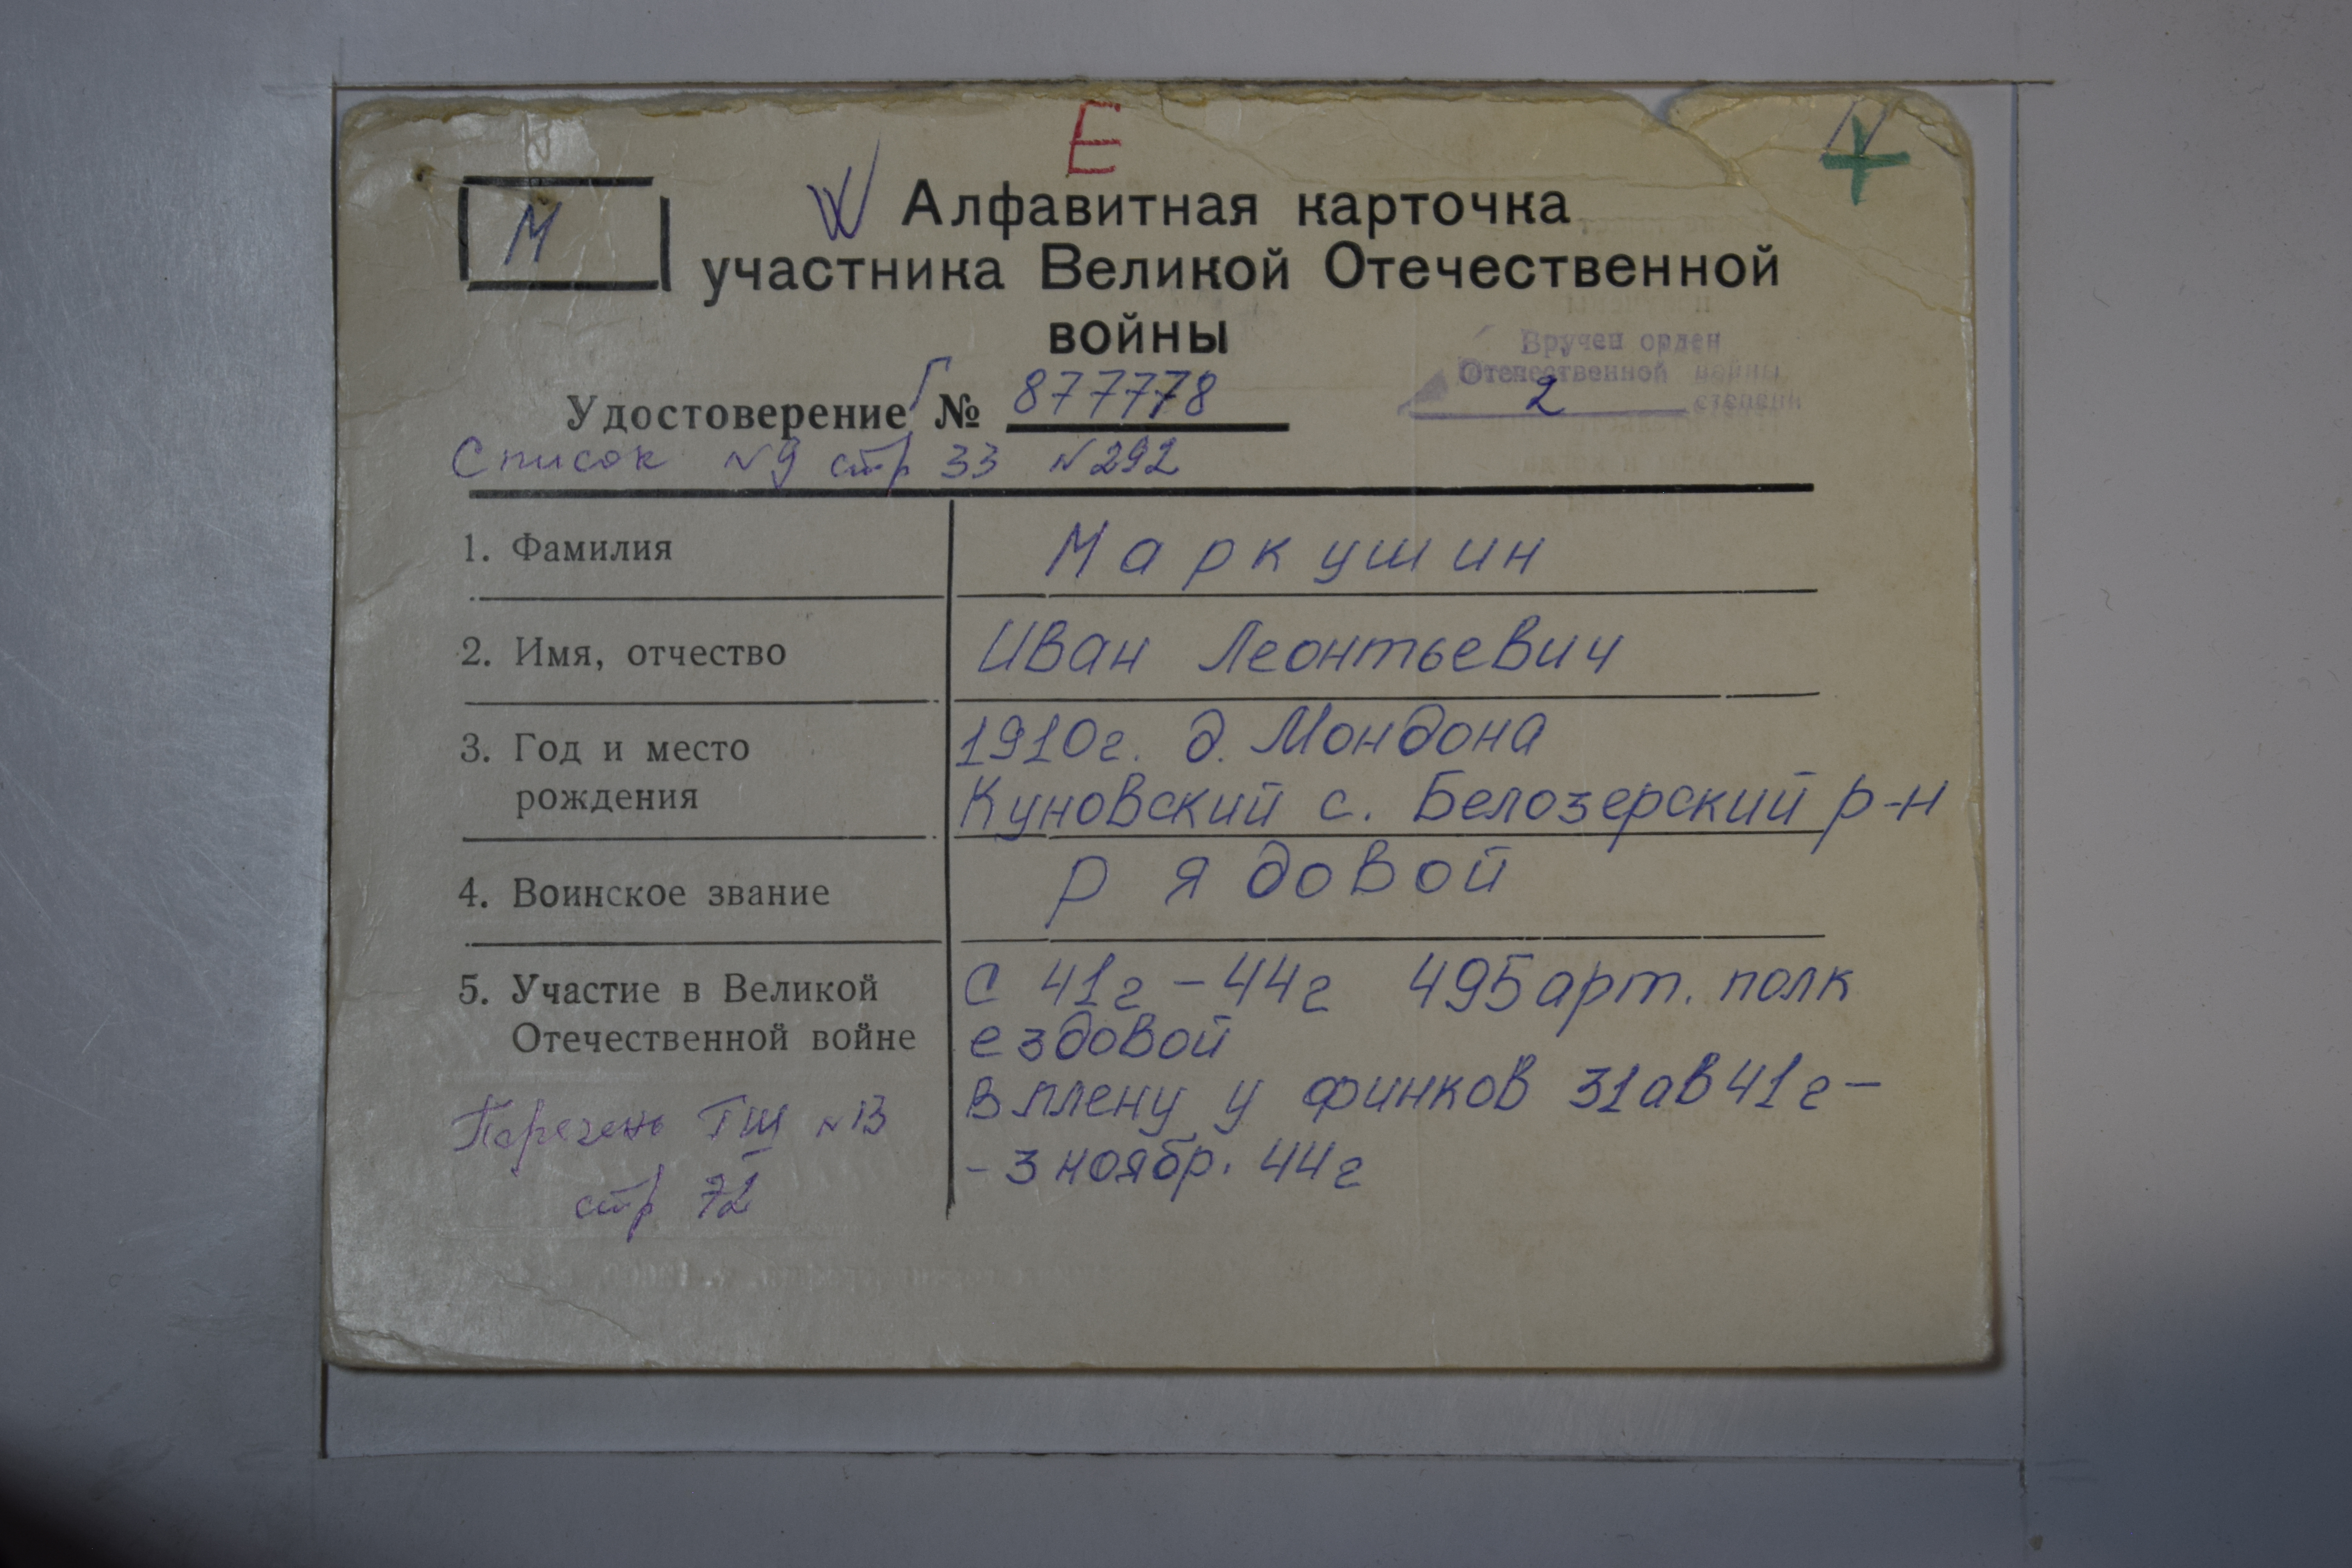 Е
N
М
W Алфавитная карточка
участника Великой Отечественной
войны
Вручен орден
Отечественной войны
2 степени
Удостоверение Г № 877778
Список №9 стр 33 №292
1. Фамилия
Маркушин
2. Имя, отчество
Иван Леонтьевич
3. Год и место
рождения
1910г. д. Мондона
Куновский с. Белозерский р-н
4. Воинское звание
рядовой
5. Участие в Великой
Отечественной войне
с 41г - 44г 495 арт. полк
ездовой
в плену у финков 31 ав 41г -
- 3 ноябр. 44г
Перечень ГШ №13
стр 72